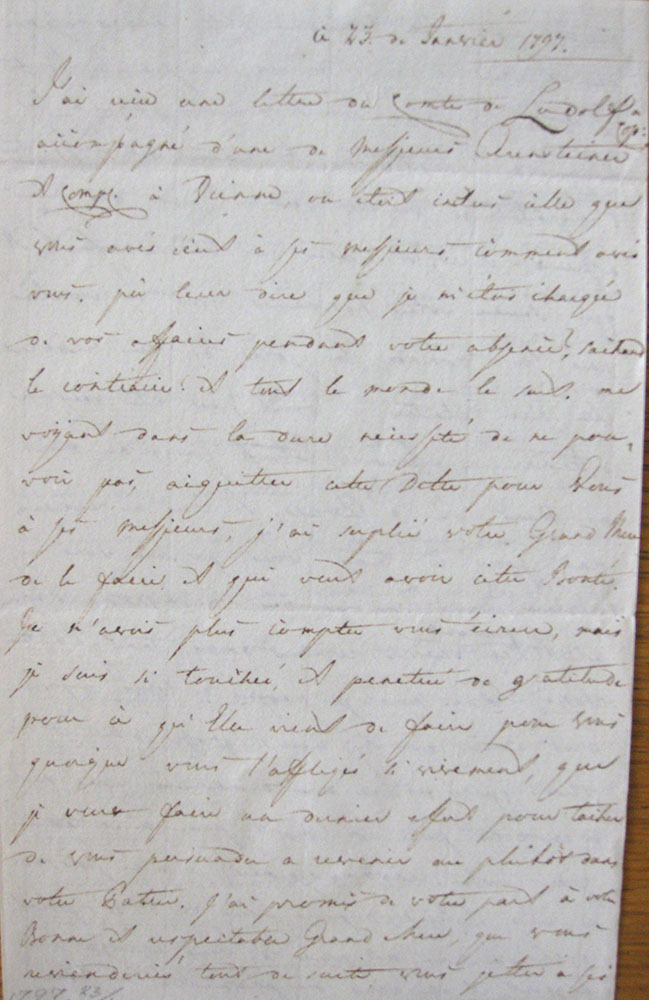 ce 23. de Janvier 1797.
J'ai reçu une lettre du Comte de Ludolf a Cop:
accompagné d'une de Messieurs Arensteiner
et Comp. à Vienne, ou etoit inclus celle que
vous avés écrit à ses Messieurs, comment avés
vous, pû leur dire que je m'étois chargée
de vos affaires pendant votre absence?, sachend
le contraire! et tout le monde le sait. me
voyant dans la dure nécessité de ne pou,
voir pas, aiguitter cette Dette pour Vous
à ses Messieurs, j'ai suplié votre Grand Mere
de le faire et qui veut avoir cette Bonté,
Je n'avois plus compter vous écrire, mais
je suis si touchée, et penetrée de gratitude
pour à qu'Elle vient de faire pour vous
quoique vous l'affligés si vivement, que
je veux faire un dernier effort pour tacher
de vous persuader a revenir au plûtot dans
votre Patrie. J'ai promis de votre part à votre
Bonne et respectable Grand Mere, que vous
reviendriés tout de suite vous jetter a ses
1797 23/1